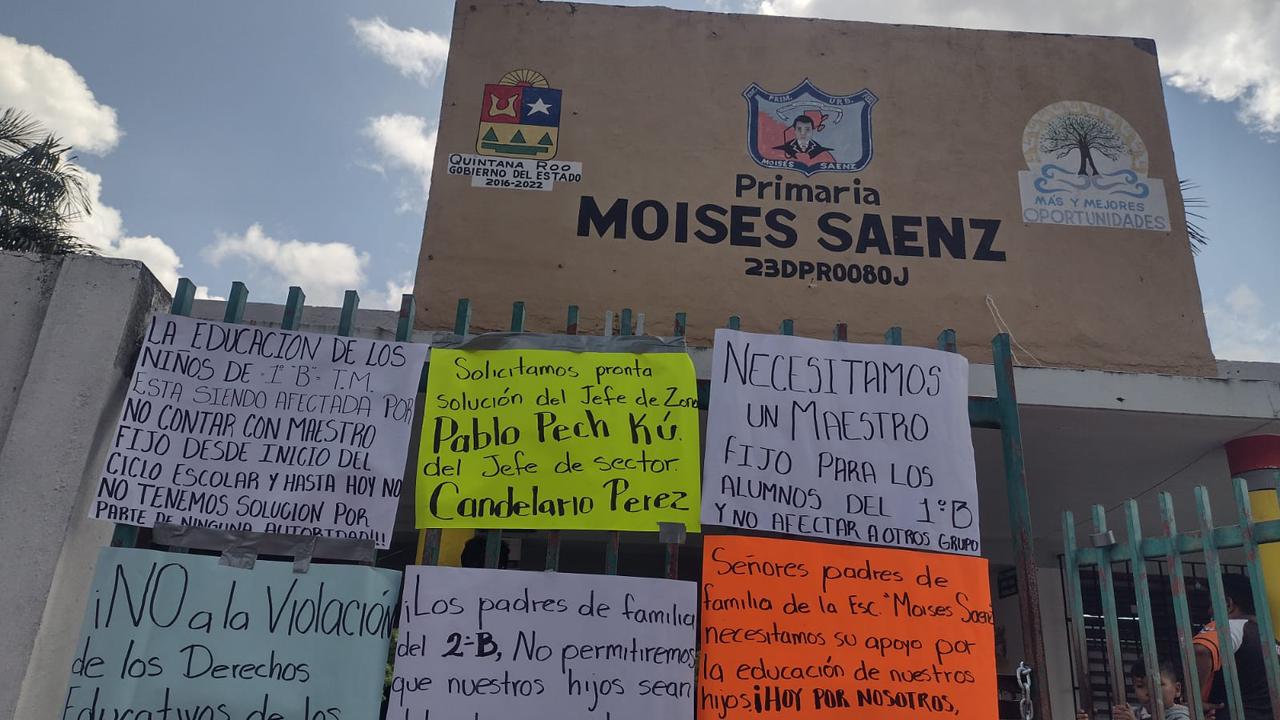 QUINTANA ROO
GOBIERNO DEL ESTADO
2016-2022
PRIM. URB.
MOISES SAENZ
Primaria
MOISES SAENZ
23DPR0080J
MÁS Y MEJORES
OPORTUNIDADES
LA EDUCACIÓN DE LOS
NIÑOS DE 1º "B" T.M.
ESTA SIENDO AFECTADA POR
NO CONTAR CON MAESTRO
FIJO DESDE INICIO DEL
CICLO ESCOLAR Y HASTA HOY NO
NO TENEMOS SOLUCIÓN POR
PARTE DE NINGUNA AUTORIDAD!!!
Solicitamos pronta
solución del Jefe de Zona
Pablo Pech Kú.
del Jefe de sector.
Candelario Perez
NECESITAMOS
UN MAESTRO
FIJO PARA LOS
ALUMNOS DEL 1ºB
Y NO AFECTAR A OTROS GRUPO
¡NO a la Violación
de los Derechos
Educativos de los
¡Los padres de familia
del 2-B, No permitiremos
que nuestros hijos sean
Señores padres de
familia de la Esc. "Moises Saenz
necesitamos su apoyo por
la educación de nuestros
hijos. ¡HOY POR NOSOTROS,